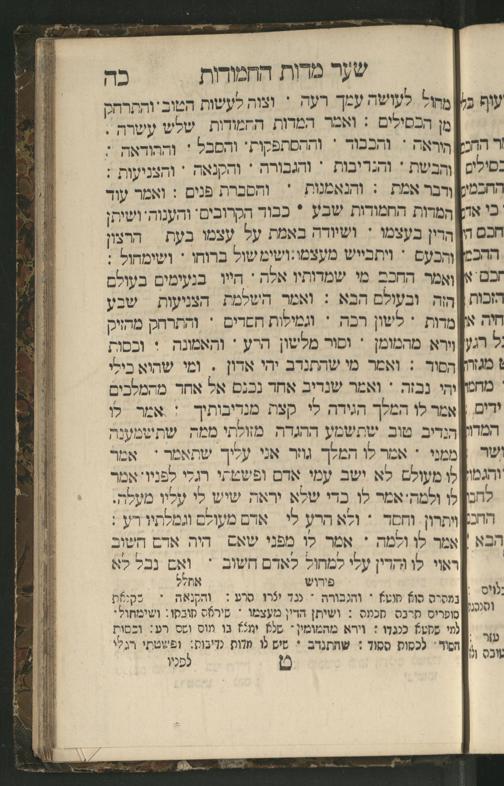 שער מדות החמודות כה
מחול לעושה עמך רעה · וצוה לעשות הטוב והתרחק
מן הכסילים : ואמר המדות החמודות שלש עשרה ·
הוראה · והכבוד · וההסתפקות · והסבל · וההודאה ·
והבשת · והנדיבות · והגבורה · והקנאה · והצניעות :
ודבר אמת : והנאמנות · והסברת פנים : ואמר עוד
המדות החמודות שבע · כבוד הקרובים · והענוה · ושיתן
הדין בעצמו · ושיודה באמת על עצמו בעת הרצון
והכעס · ויתבייש מעצמו : ושימשול ברוחו · ושימחול :
ואמר החכם מי שמדותיו אלה · חייו בנעימים בעולם
הזה ובעולם הבא : ואמר השלמת הצניעות שבע
מדות · לשון רכה · וגמילות חסדים · והתרחק מהזיק
וירא מהמומן · וסור מלשון הרע · והאמונה · וכסות
הסוד : ואמר מי שהתנדב יהי אדון · ומי שהוא כילי
יהי נבזה · ואמר שנדיב אחד נכנס אל אחד מהמלכים
אמר לו המלך הגידה לי קצת מנדיבותיך · אמר לו
הנדיב טוב שתשמע ההגדה מזולתי ממה שתשמענה
ממני · אמר לו המלך גוזר אני עליך שתאמר · אמר
לו מעולם לא ישב עמי אדם ופשטתי רגלי לפניו · אמר
לו ולמה · אמר לו כדי שלא יראה שיש לי עליו מעלה
ויתרון וחסד · ולא הרע לי אדם מעולם וגמלתיו רע :
אמר לו ולמה · אמר לו מפני שאם היה אדם חשוב
ראוי לו והדין עלי למחול לאדם חשוב · ואם נבל לא
פירוש אחלל
הוא חוטא · והגבורה · נגד יצרו הרע : והקנאה · בקנאת
סופרים תרבה חכמה : ושיתן הדין מעצמו · שיראה חובתו : ושימחול ·
למי שחטא כנגדו : וירא מהמומין · שלא ימצא בו מום ושם רע : וכסות
הסוד · לכסות הסוד : שהתנדב · שיש לו מדות נדיבות : ופשטתי רגלי
ט לפניו